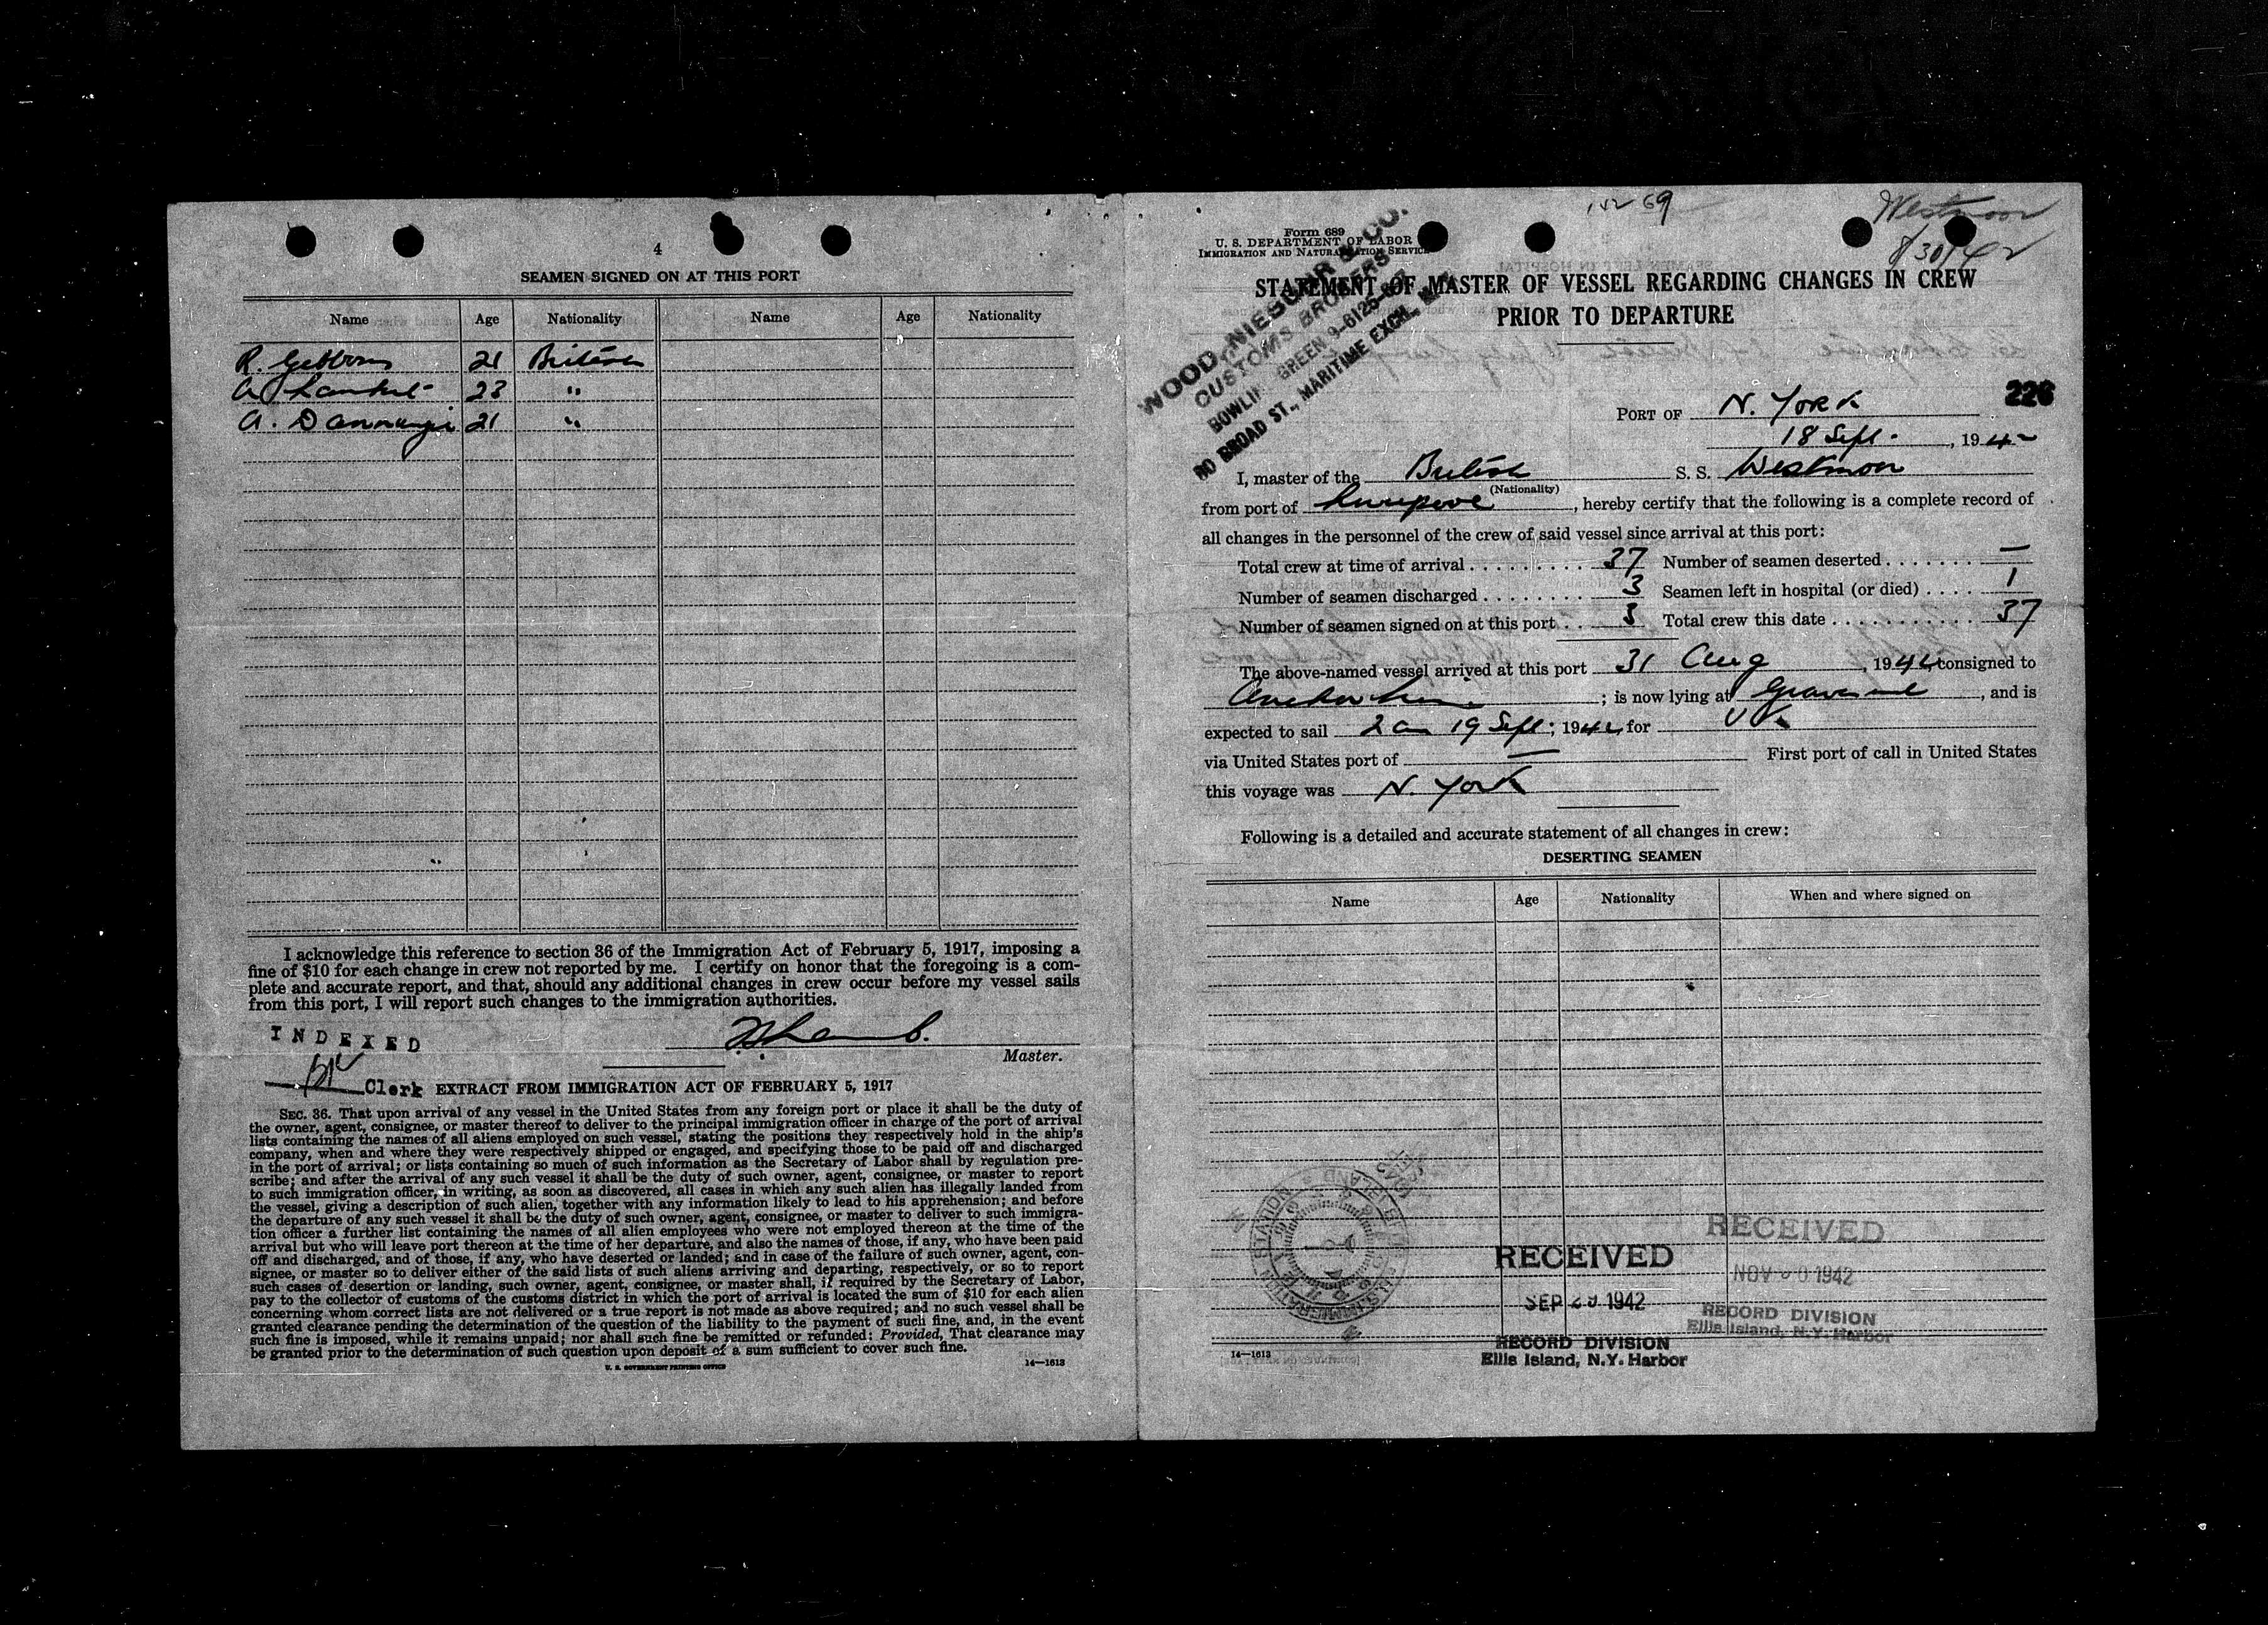 4
SEAMEN SIGNED ON AT THIS PORT
Name Age Nationality Name Age Nationality
R. Gibbons 21 British
A 23 "
A. 21 "
I acknowledge this reference to section 36 of the Immigration Act of February 5, 1917, imposing a
fine of $10 for each change in crew not reported by me. I certify on honor that the foregoing is a com-
plete and accurate report, and that, should any additional changes in crew occur before my vessel sails
from this port, I will report such changes to the immigration authorities.
INDEXED
Master.
Clerk EXTRACT FROM IMMIGRATION ACT OF FEBRUARY 5, 1917
SEC. 36. That upon arrival of any vessel in the United States from any foreign port or place it shall be the duty of
the owner, agent, consignee, or master thereof to deliver to the principal immigration officer in charge of the port of arrival
lists containing the names of all aliens employed on such vessel, stating the positions they respectively hold in the ship's
company, when and where they were respectively shipped or engaged, and specifying those to be paid off and discharged
in the port of arrival; or lists containing so much of such information as the Secretary of Labor shall by regulation pre-
scribe; and after the arrival of any such vessel it shall be the duty of such owner, agent, consignee, or master to report
to such immigration officer, in writing, as soon as discovered, all cases in which any such alien has illegally landed from
the vessel, giving a description of such alien, together with any information likely to lead to his apprehension; and before
the departure of any such vessel it shall be the duty of such owner, agent, consignee, or master to deliver to such immigra-
tion officer a further list containing the names of all alien employees who were not employed thereon at the time of the
arrival but who will leave port thereon at the time of her departure, and also the names of those, if any, who have been paid
off and discharged, and of those, if any, who have deserted or landed; and in case of the failure of such owner, agent, con-
signee, or master so to deliver either of the said lists of such aliens arriving and departing, respectively, or so to report
such cases of desertion or landing, such owner, agent, consignee, or master shall, if required by the Secretary of Labor,
pay to the collector of customs of the customs district in which the port of arrival is located the sum of $10 for each alien
concerning whom correct lists are not delivered or a true report is not made as above required; and no such vessel shall be
granted clearance pending the determination of the question of the liability to the payment of such fine, and, in the event
such fine is imposed, while it remains unpaid; nor shall such fine be remitted or refunded: Provided, That clearance may
be granted prior to the determination of such question upon deposit of a sum sufficient to cover such fine.
U. S. GOVERNMENT PRINTING OFFICE 14—1613
69
Westmoor
8/30/42
Form 689
U. S. DEPARTMENT OF LABOR
IMMIGRATION AND NATURALIZATION SERVICE
WOOD, NIEBUHR & CO.
CUSTOMS BROKERS
BOWLING GREEN 9-6125-6
80 BROAD ST., MARITIME EXCH.
STATEMENT OF MASTER OF VESSEL REGARDING CHANGES IN CREW
PRIOR TO DEPARTURE
226
PORT OF N. York
18 Sept. , 1942
I, master of the British S. S. Westmoor
(Nationality)
from port of Liverpool , hereby certify that the following is a complete record of
all changes in the personnel of the crew of said vessel since arrival at this port:
Total crew at time of arrival 37 Number of seamen deserted —
Number of seamen discharged 3 Seamen left in hospital (or died) 1
Number of seamen signed on at this port 3 Total crew this date 37
The above-named vessel arrived at this port 31 Aug , 1942, consigned to
; is now lying at Gravesend , and is
expected to sail 2 am 19 Sept ; 1942, for UK
via United States port of — First port of call in United States
this voyage was N. York
Following is a detailed and accurate statement of all changes in crew:
DESERTING SEAMEN
Name Age Nationality When and where signed on
RECEIVED
SEP 29 1942
RECORD DIVISION
Ellis Island, N.Y. Harbor
RECEIVED
NOV 1942
RECORD DIVISION
Ellis Island, N.Y. Harbor
14—1613